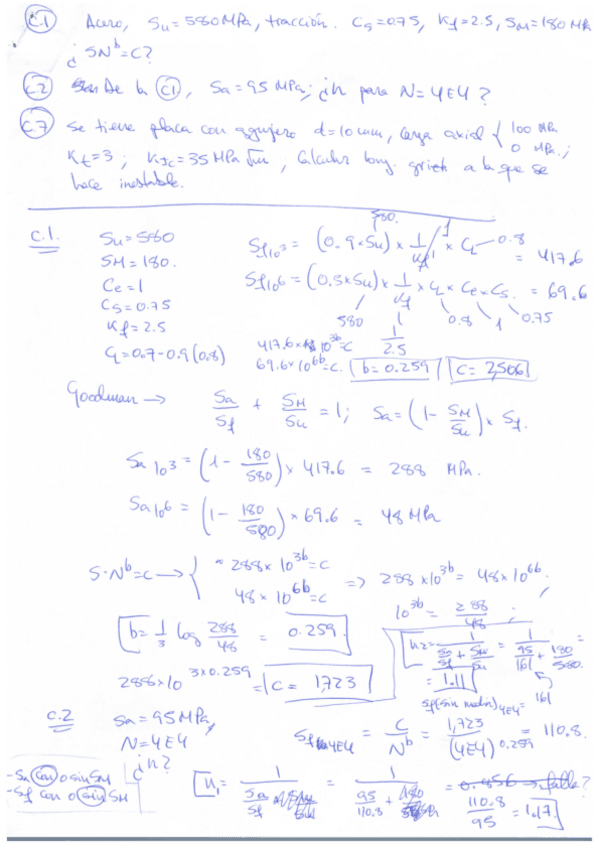 C.1 Acero, Su = 580 MPa, tracción. Cs = 0.75, Kf = 2.5, SM = 180 MPa
¿ SN^b = C?
C.2 De la C1, Sa = 95 MPa; ¿n para N = 4E4?
C.7 Se tiene placa con agujero d = 10 mm, carga axial { 100 MPa
0 MPa.;
Kt = 3; KIC = 35 MPa √m, Calcular long. grieta a la que se
hace inestable.
C.1. Su = 580
SM = 180.
Ce = 1
Cs = 0.75
Kf = 2.5
CL = 0.7 - 0.9 (0.8)
580.
Sf10^3 = (0.9 × Su) × 1/Kf' × CL = 417.6
1
0.8
Sf10^6 = (0.5 × Su) × 1/Kf × CL × Ce × Cs. = 69.6
580
1/2.5
0.8 1 0.75
417.6 × 10^3b = C
69.6 × 10^6b = C. b = 0.259 C = 2,506
Goodman → Sa/Sf + SM/Su = 1; Sa = (1 - SM/Su) × Sf.
Sa10^3 = (1 - 180/580) × 417.6 = 288 MPa.
Sa10^6 = (1 - 180/580) × 69.6 = 48 MPa
S·N^b = C → { 288 × 10^3b = C
48 × 10^6b = C
=> 288 × 10^3b = 48 × 10^6b.
10^3b = 288/48;
b = 1/3 log 288/48 = 0.259.
288 × 10^3×0.259 = C = 1,723
n2 = 1/(Sa/Sf + SM/Su) = 1/(95/161 + 180/580) =
= 1.11
Sf (sin media)4E4 = 161
C.2 Sa = 95 MPa,
N = 4E4
¿n?
Sf4E4 = C/N^b = 1,723/(4E4)^0.259 = 110.8.
- Sa con o sin SM
- Sf con o sin SM
n1 = 1/(Sa/Sf) = 1/(95/110.8) = 110.8/95 = 1.17.